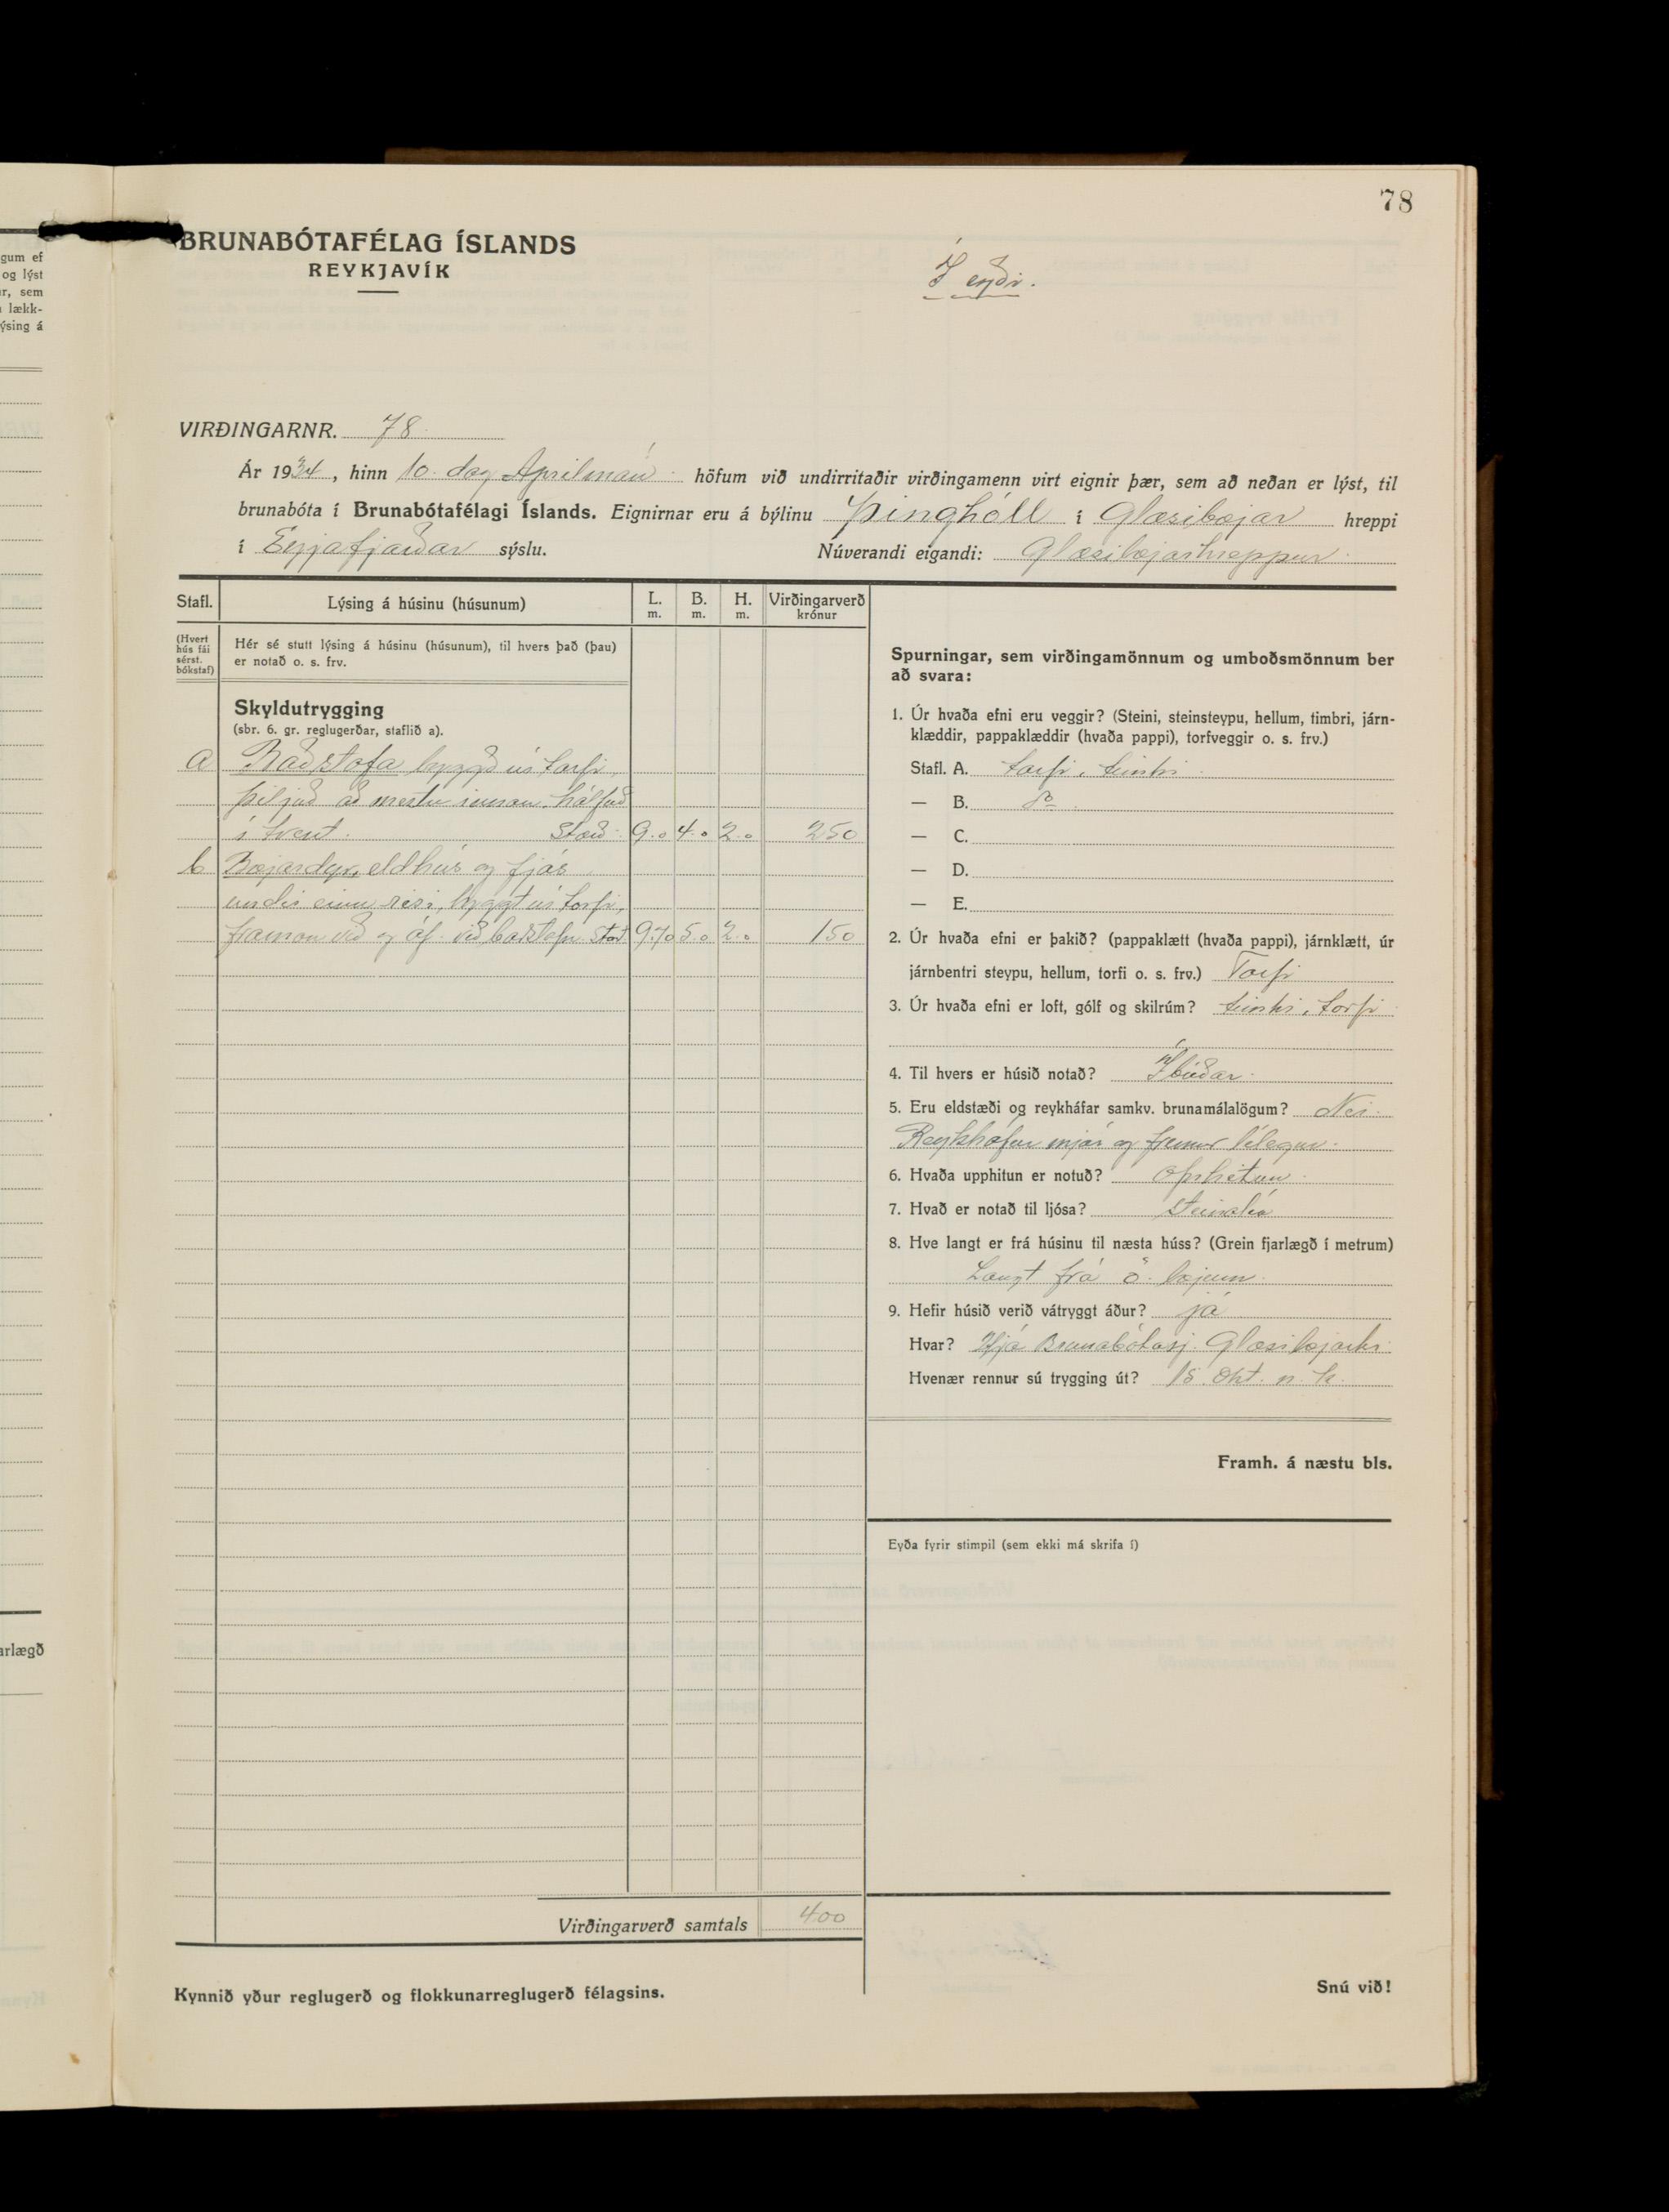 78
BRUNABÓTAFÉLAG ÍSLANDS
REYKJAVÍK
Í eyði.
VIRÐINGARNR. 78
Ár 1934, hinn 10. dag Aprílmán. höfum við undirritaðir virðingamenn virt eignir þær, sem að neðan er lýst, til
brunabóta í Brunabótafélagi Íslands. Eignirnar eru á býlinu Þinghóll í Glæsibæjar hreppi
í Eyjafjarðar sýslu. Núverandi eigandi: Glæsibæjarhreppur.
Stafl. Lýsing á húsinu (húsunum) L. m. B. m. H. m. Virðingarverð krónur
(Hvert hús fái sérst. bókstaf)
Hér sé stutt lýsing á húsinu (húsunum), til hvers það (þau)
er notað o. s. frv.
Skyldutrygging
(sbr. 6. gr. reglugerðar, staflið a).
a Baðstofa byggð úr torfi,
þiljuð að mestu innan, hálfuð
í tvent. Stærð: 9.0 4.0 2.0 250
b Bæjardyr, eldhús og fjós
undir einu risi, byggt úr torfi,
framan við og áf. við baðstofu. Stærð 9.70 5.0 2.0 150
Virðingarverð samtals 400
Kynnið yður reglugerð og flokkunarreglugerð félagsins.
Spurningar, sem virðingamönnum og umboðsmönnum ber
að svara:
1. Úr hvaða efni eru veggir? (Steini, steinsteypu, hellum, timbri, járn-
klæddir, pappaklæddir (hvaða pappi), torfveggir o. s. frv.)
Stafl. A. torfi, timbri
— B. do
— C.
— D.
— E.
2. Úr hvaða efni er þakið? (pappaklætt (hvaða pappi), járnklætt, úr
járnbentri steypu, hellum, torfi o. s. frv.) Torfi
3. Úr hvaða efni er loft, gólf og skilrúm? timbri, torfi
4. Til hvers er húsið notað? Íbúðar.
5. Eru eldstæði og reykháfar samkv. brunamálalögum? Nei.
Reykháfur mjór og fremur lélegur.
6. Hvaða upphitun er notuð? Ofnhitun.
7. Hvað er notað til ljósa? Steinolía
8. Hve langt er frá húsinu til næsta húss? (Grein fjarlægð í metrum)
Langt frá ö. bæjum.
9. Hefir húsið verið vátryggt áður? já
Hvar? Hjá Brunabótasj. Glæsibæjarhr.
Hvenær rennur sú trygging út? 15. Okt. n. k.
Framh. á næstu bls.
Eyða fyrir stimpil (sem ekki má skrifa í)
Snú við!
gum ef
og lýst
r, sem
lækk-
ýsing á
arlægð